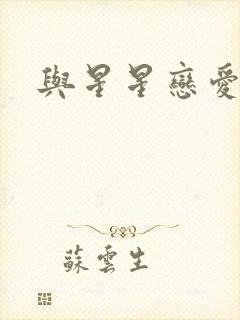 與星星戀愛
蘇雲生